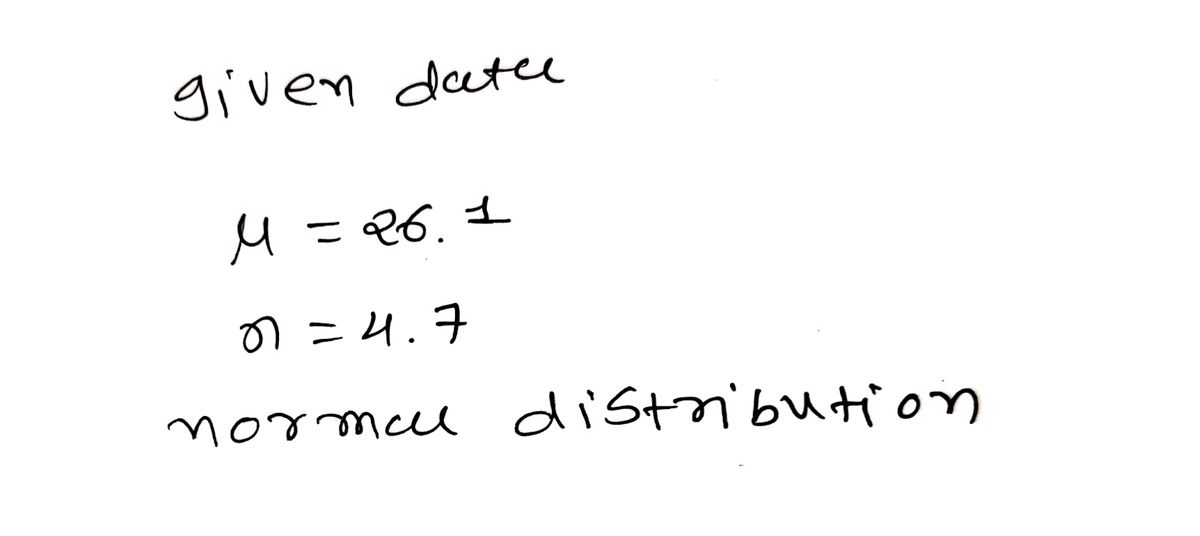 given data
μ = 26.1
σ = 4.7
normal distribution